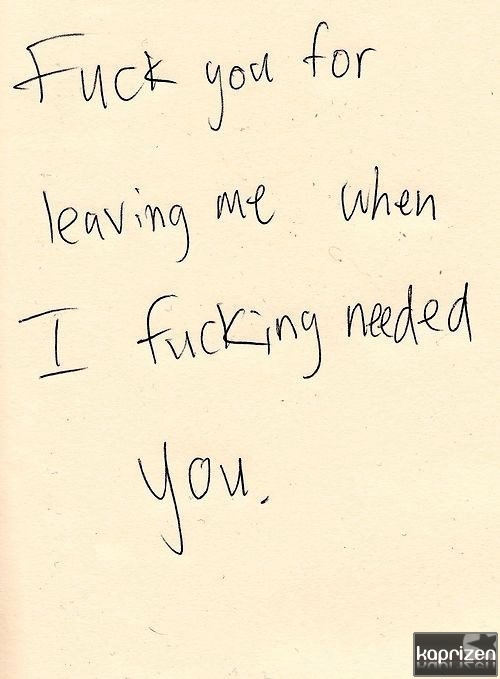 Fuck you for
leaving me when
I fucking needed
you.
kaprizen